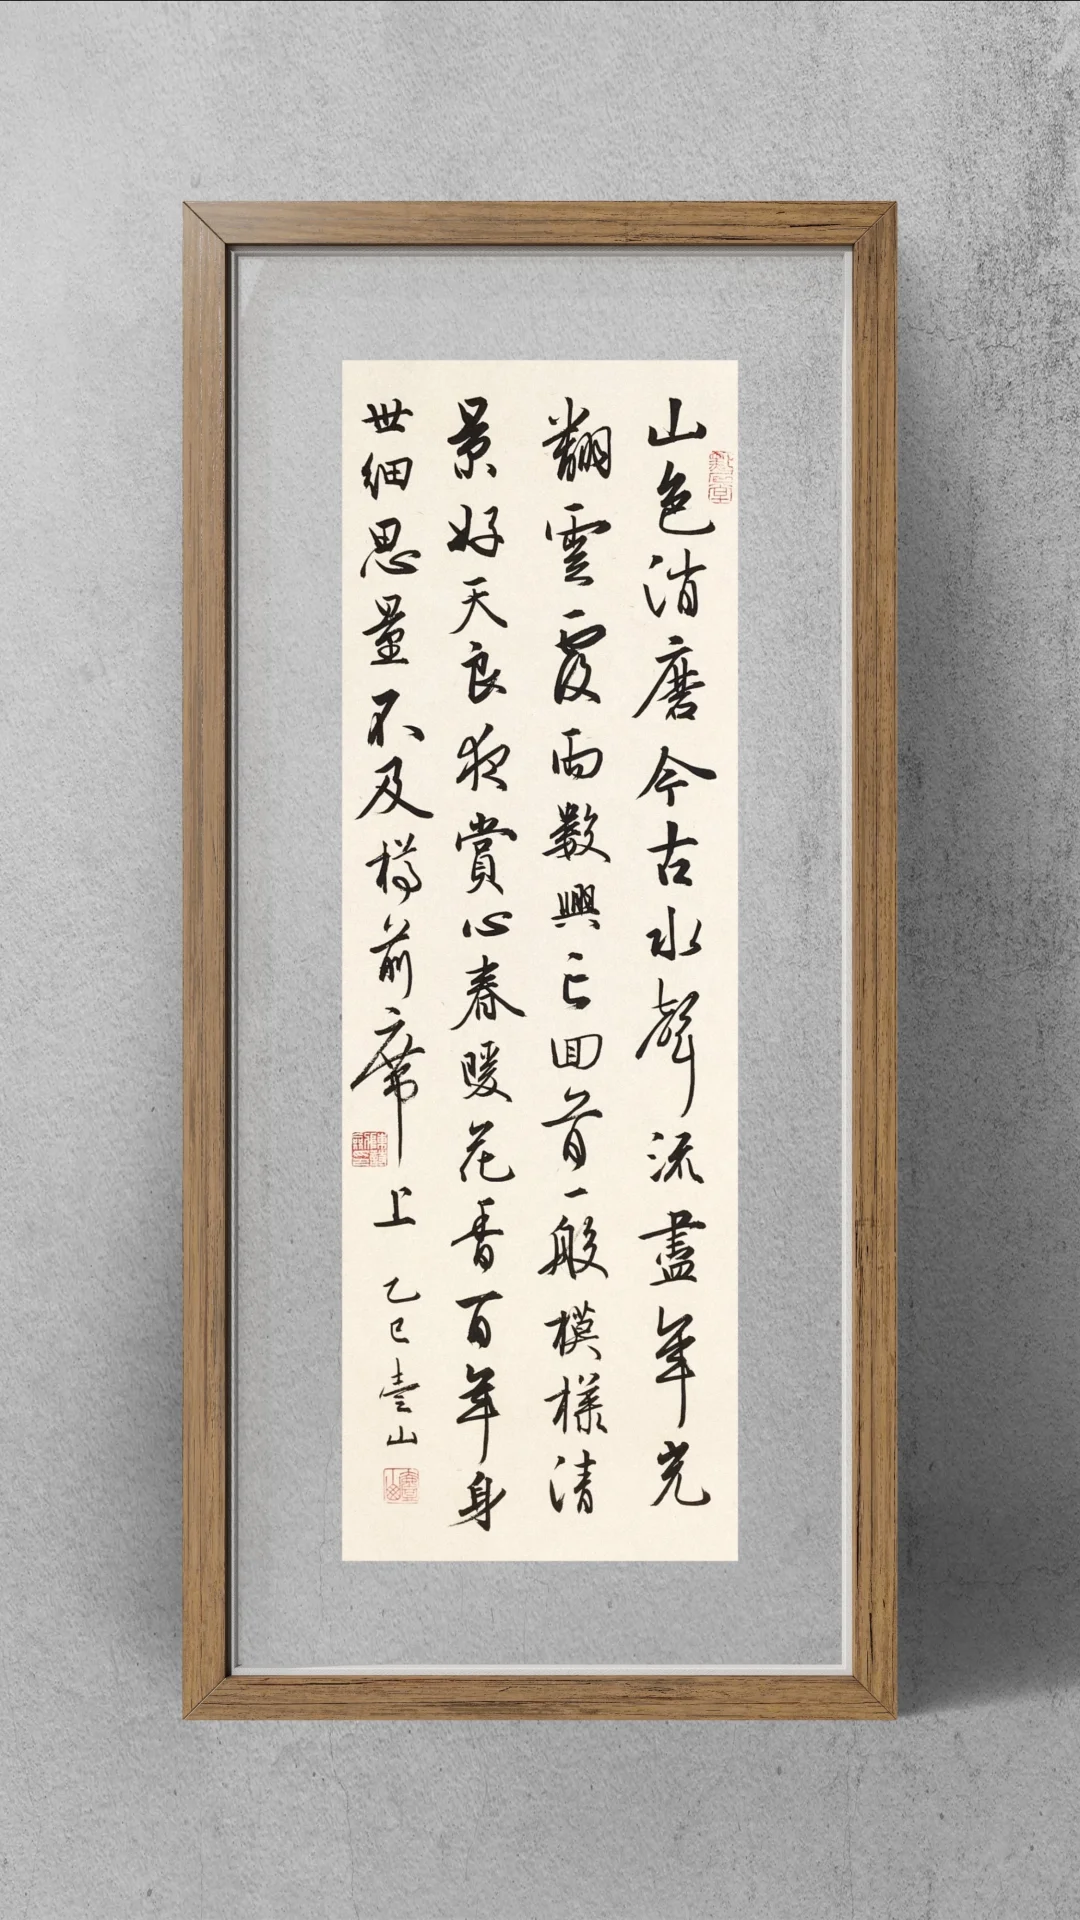 山色消磨今古水聲流盡年光
翻雲覆雨數興亡回首一般模樣清
景好天良夜賞心春暖花香百年身
世細思量不及樽前席上
乙巳壹山